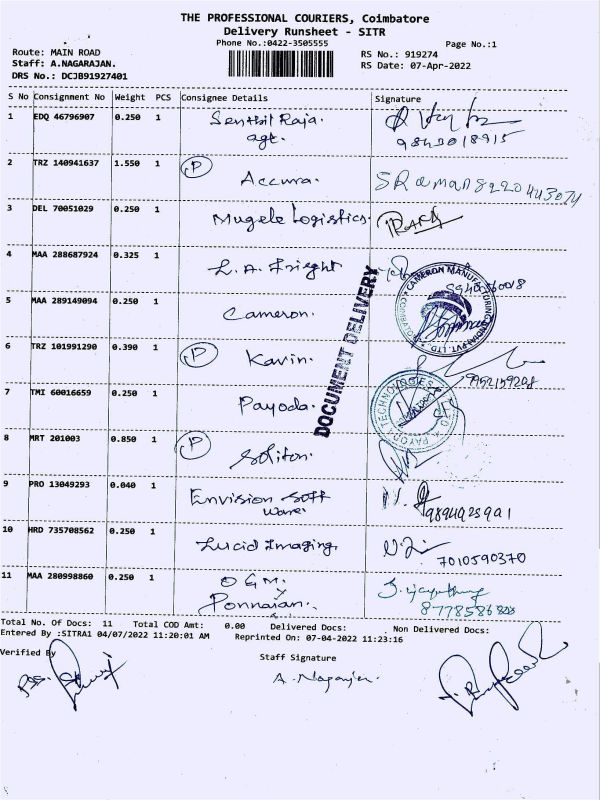 THE PROFESSIONAL COURIERS, Coimbatore
Delivery Runsheet - SITR
Phone No.:0422-3505555
Page No.:1
Route: MAIN ROAD
Staff: A.NAGARAJAN.
DRS No.: DCJB91927401
RS No.: 919274
RS Date: 07-Apr-2022
S No Consignment No Weight PCS Consignee Details Signature
1 EDQ 46796907 0.250 1 Senthil Raja.
agt.
9843018915
2 TRZ 140941637 1.550 1 P Accura.
3 DEL 70051029 0.250 1 Mugele Logistics.
4 MAA 288687924 0.325 1 L.A. Frieght
5 MAA 289149094 0.250 1 Cameron.
6 TRZ 101991290 0.390 1 P Kavin.
7 TMI 60016659 0.250 1 Payoda.
8 MRT 201003 0.850 1 P Soliton.
9 PRO 13049293 0.040 1 Envision Soft
ware.
10 HRD 735708562 0.250 1 Lucid Imaging.
7010590370
11 MAA 280998860 0.250 1 O G M.
Ponnaian.
DOCUMENT DELIVERY
Total No. Of Docs: 11 Total COD Amt: 0.00 Delivered Docs: Non Delivered Docs:
Entered By :SITRA1 04/07/2022 11:20:01 AM Reprinted On: 07-04-2022 11:23:16
Verified By
Staff Signature
A. Nagarajan